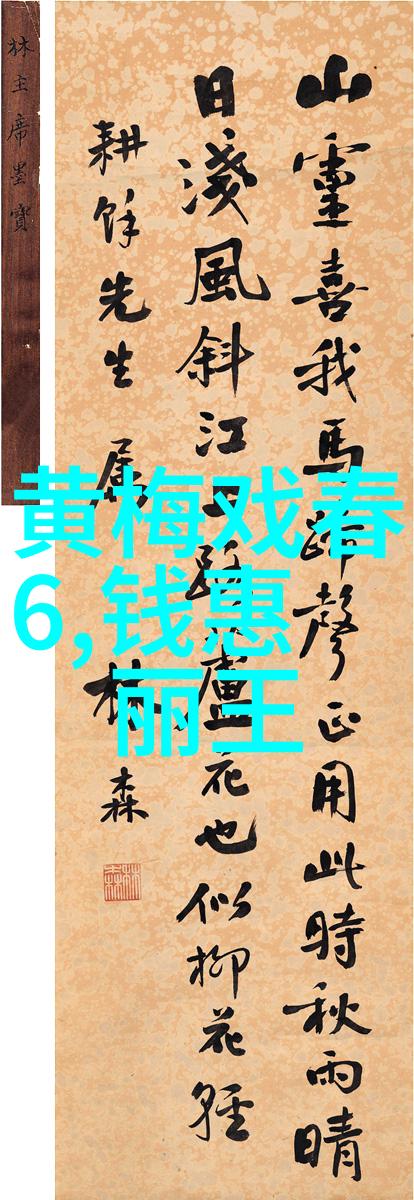 林主席墨寶
山靈喜我馬蹄聲正用此時秋雨晴
日淺風斜江上路蘆花也似柳花輕
耕餘先生屬
林森
黄梅戏春
6,钱惠
丽王